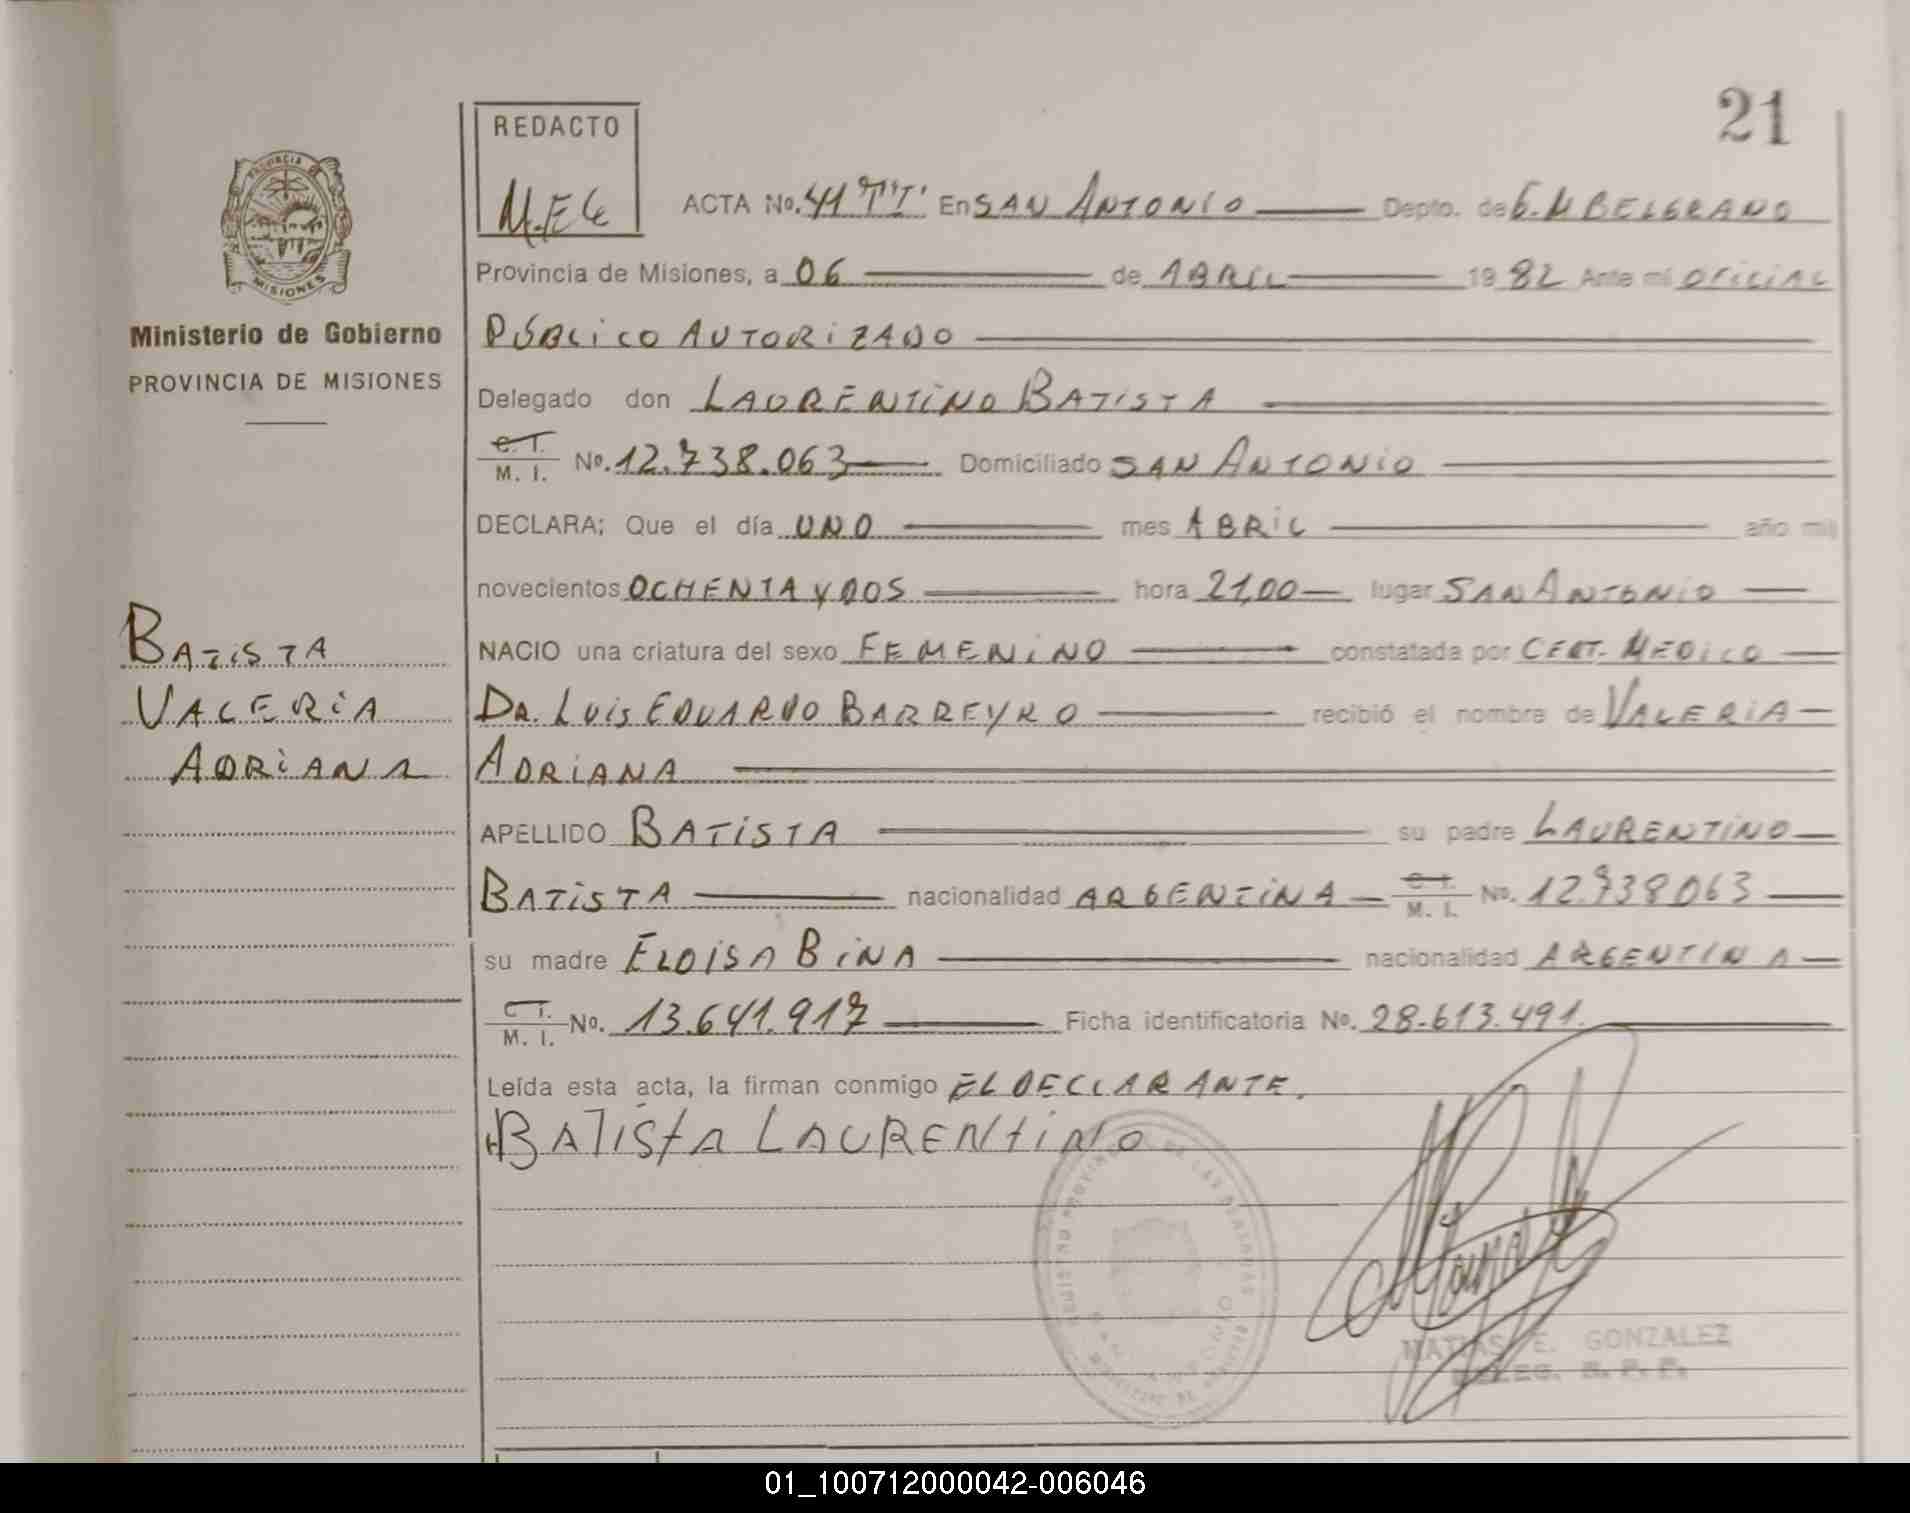 21
REDACTO
M.E.G
ACTA No. 41 TºIº En SAN ANTONIO Depto. de G. M BELGRANO
PROVINCIA
MISIONES
Provincia de Misiones, a 06 de ABRIL 1982 Ante mi OFICIAL
Ministerio de Gobierno
PÚBLICO AUTORIZADO
PROVINCIA DE MISIONES
Delegado don LAURENTINO BATISTA
C. I.
M. I. No. 12.738.063 Domiciliado SAN ANTONIO
DECLARA: Que el día UNO mes ABRIL año mil
novecientos OCHENTA Y DOS hora 21,00 lugar SAN ANTONIO
BATISTA
NACIO una criatura del sexo FEMENINO constatada por CERT. MEDICO
VALERIA
DR. LUIS EDUARDO BARREYRO recibió el nombre de VALERIA
ADRIANA
ADRIANA
APELLIDO BATISTA su padre LAURENTINO
BATISTA nacionalidad ARGENTINA C. I. M. I. No. 12.738063
su madre ELOISA BINA nacionalidad ARGENTINA
C. I.
M. I. No. 13.641.917 Ficha identificatoria No. 28.613.491.
Leída esta acta, la firman conmigo EL DECLARANTE.
BATISTA LAURENTINO
MATIAS E. GONZALEZ
DELEG. R. P. P.
01_100712000042-006046